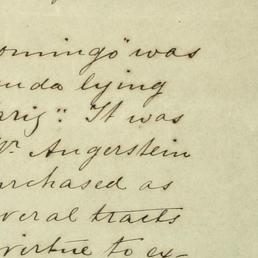 omingo" was
nda lying
rig". It was
Mr. Angerstein
urchased as
everal tracts
virtue to ex-